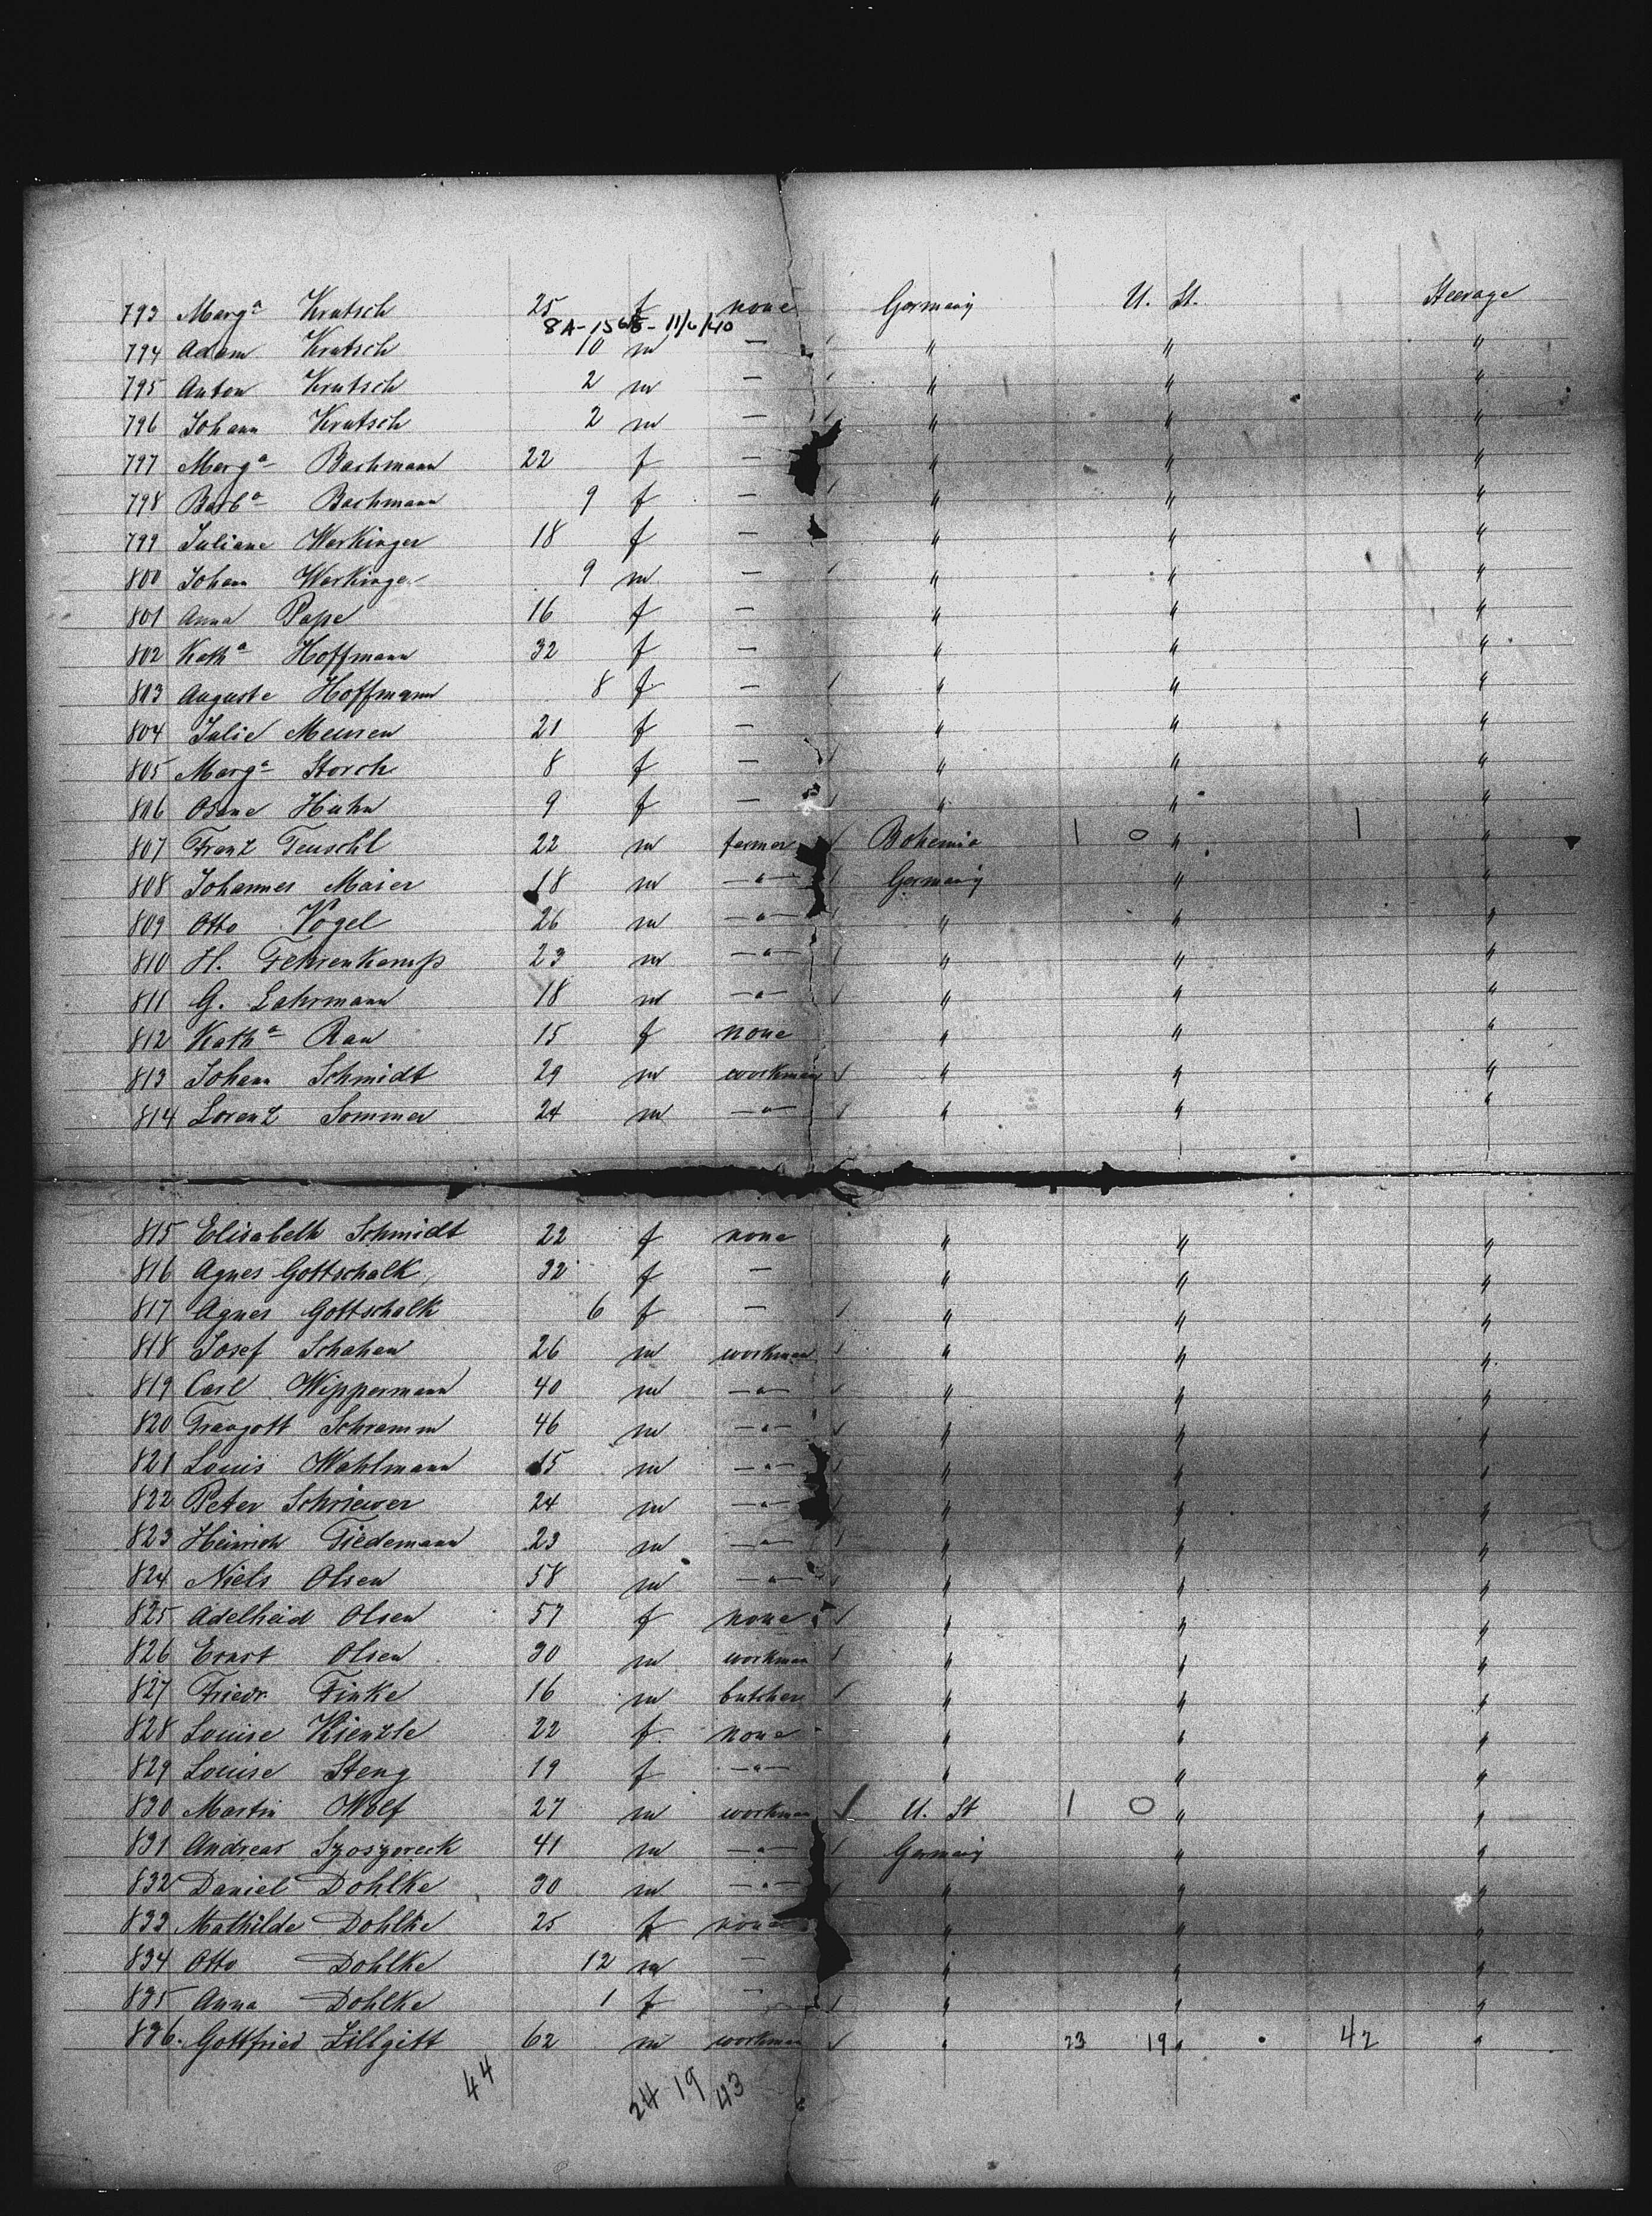 793 Marg<sup>a</sup> Krutsch 25 f none Germany U. St. Steerage
8A-1568-11/6/40
794 Adam Krutsch 10 m — " " "
795 Anton Krutsch 2 m — " " "
796 Johann Krutsch 2 m — " " "
797 Marg<sup>a</sup> Bachmann 22 f — " " "
798 Barb<sup>a</sup> Bachmann 9 f — " " "
799 Juliane Werkinger 18 f — " " "
800 Johann Werkinger 9 m — " " "
801 Anna Pape 16 f — " " "
802 Kath<sup>a</sup> Hoffmann 32 f — " " "
803 Auguste Hoffmann 8 f — " " "
804 Julie Meuren 21 f — " " "
805 Marg<sup>a</sup> Storch 8 f — " " "
806 Huhn 9 f — " " "
807 Franz Teuschl 22 m farmer Bohemia 1 0 " 1 "
808 Johannes Maier 18 m —"— Germany " "
809 Otto Vogel 26 m —"— " " "
810 H. Fehrenkamp 23 m —"— " " "
811 G. Lahrmann 18 m —"— " " "
812 Kath<sup>a</sup> Rau 15 f none " " "
813 Johann Schmidt 29 m workman " " "
814 Lorenz Sommer 24 m —"— " " "
815 Elisabeth Schmidt 22 f none " " "
816 Agnes Gottschalk 32 f — " " "
817 Agnes Gottschalk 6 f — " " "
818 Josef Schahan 26 m workman " " "
819 Carl Wippermann 40 m —"— " " "
820 Traugott Schramm 46 m —"— " " "
821 Louis Wahlmann 15 m —"— " " "
822 Peter Schriewer 24 m —"— " " "
823 Heinrich Tiedemann 23 m —"— " " "
824 Niels Olsen 58 m —"— " " "
825 Adelheid Olsen 57 f none " " "
826 Ernst Olsen 30 m workman " " "
827 Friedr. Finke 16 m butcher " " "
828 Louise Kienzle 22 f none " " "
829 Louise Steng 19 f —"— " " "
830 Martin Wolf 27 m workman U. St 1 0 " "
831 Andreas Szoszoreck 41 m —"— Germany " "
832 Daniel Dohlke 30 m —"— " " "
833 Mathilde Dohlke 25 f none " " "
834 Otto Dohlke 12 m — " " "
835 Anna Dohlke 1 f — " " "
836. Gottfried Lillgitt 62 m workman " 23 19 " 42 "
44 24 19 43